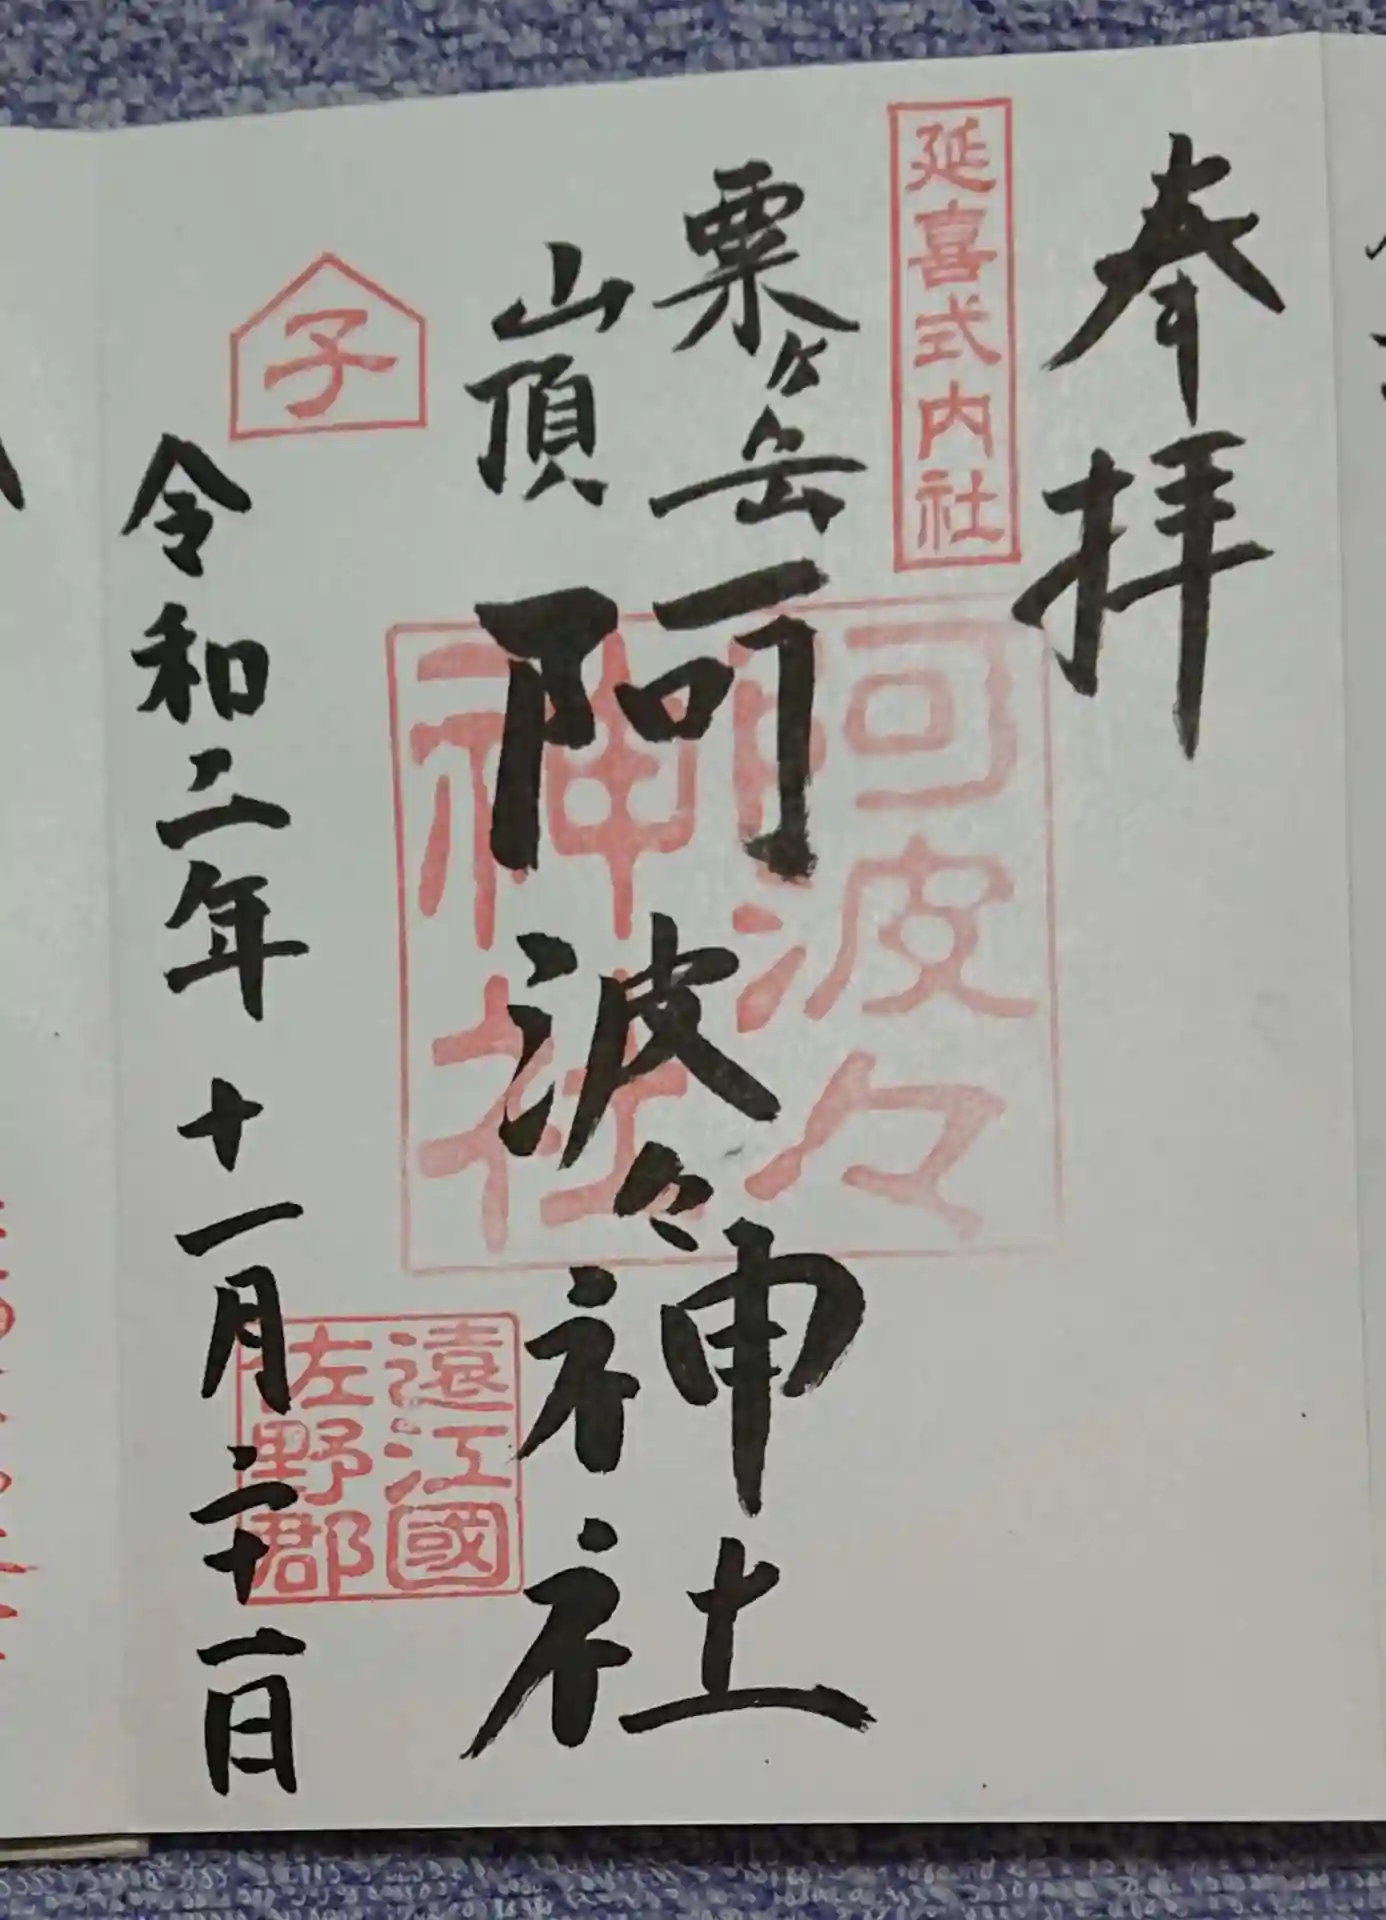 奉拝
延喜式内社
粟ヶ岳
山頂
阿波々神社
阿波々
神社
子
遠江國
佐野郡
令和二年十一月二十一日